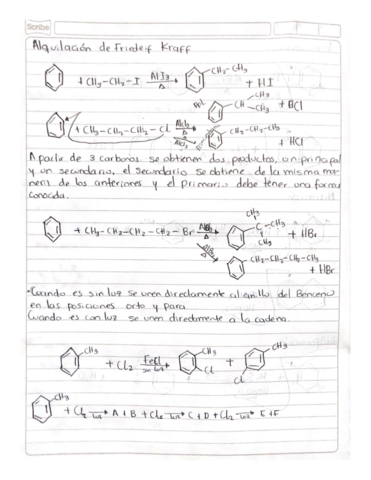 Scribe
Alquilación de Friedelf Kraff
+ CH3-CH2-I AlI3 Δ CH2-CH3 + HI
+ CH3-CH2-CH2-Cl AlCl3 Δ CH CH3 CH3 + HCl
AlCl3 CH2-CH2-CH3 + HCl
A partir de 3 carbonos se obtienen dos productos, un principal
y un secundario, el secundario se obtiene de la misma ma-
nera de los anteriores y el primario debe tener una forma
conocida.
+ CH3-CH2-CH2-CH2-Br AlBr3 Δ CH3 C CH3 CH3 + HBr
AlBr3 CH2-CH2-CH2-CH3 + HBr
*Cuando es sin luz se unen directamente al anillo del Benceno
en las posiciones orto y para
Cuando es con luz se unen directamente a la cadena.
CH3 + Cl2 FeCl sin luz CH3 Cl + CH3 Cl
CH3 + Cl2 luz A + B + Cl2 luz C + D + Cl2 luz E + F